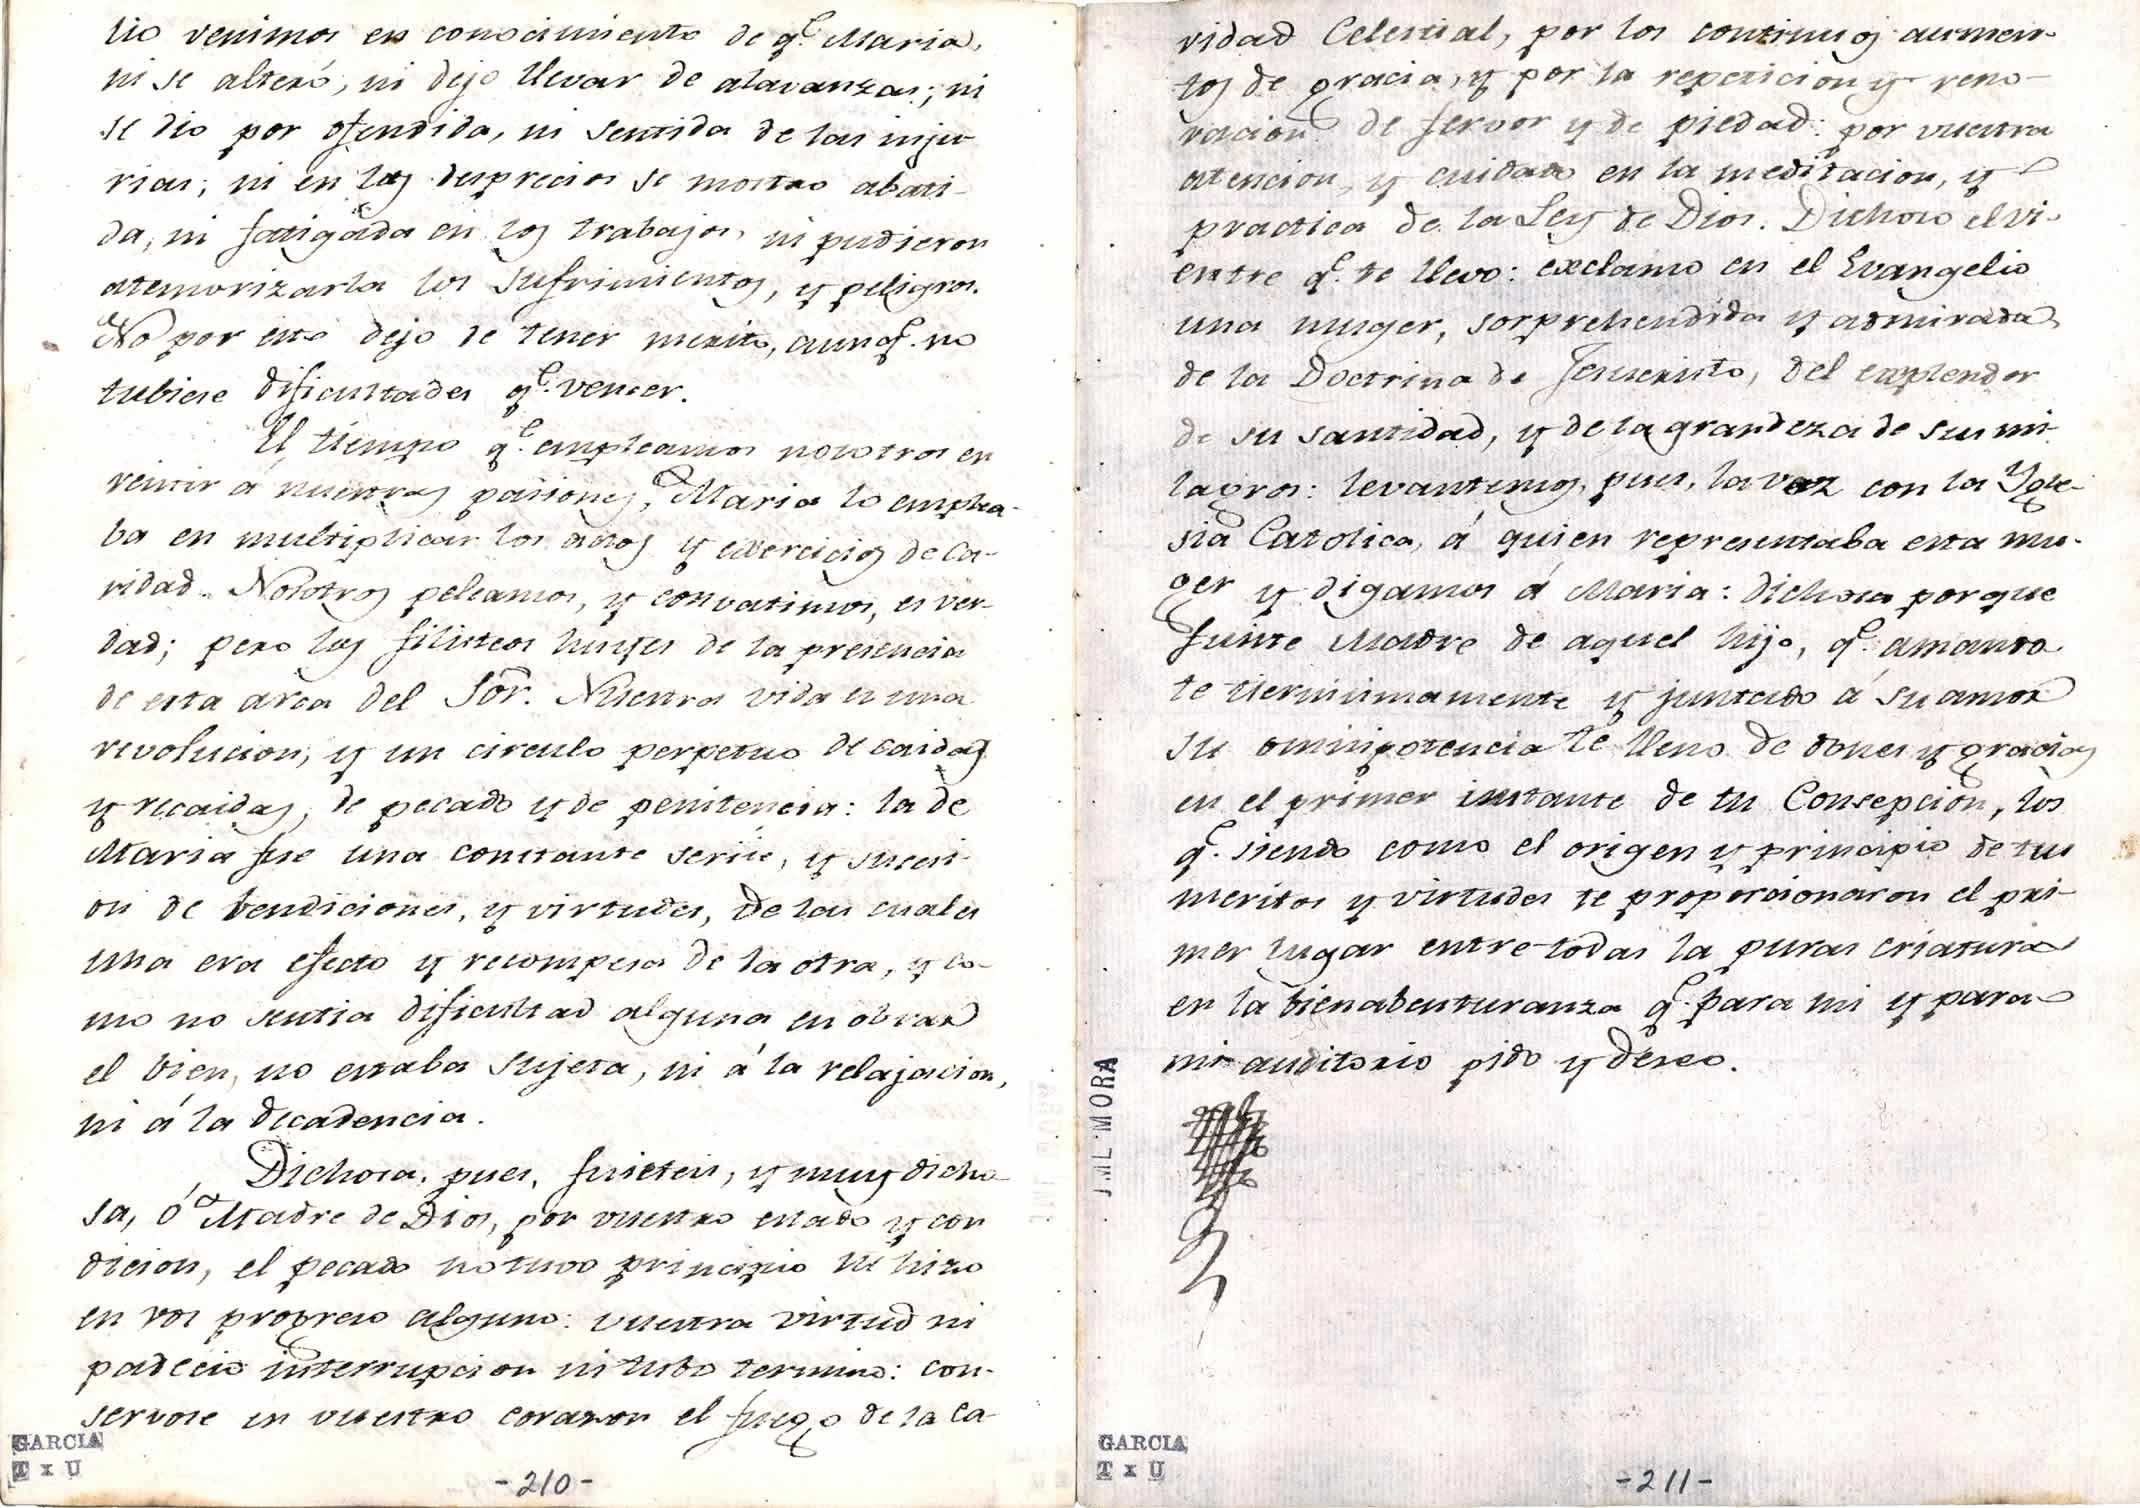 lio venimos en conocimiento de q.e Maria,
ni se alteró, ni dejo llevar de alavanzas; ni
se dio por ofendida, ni sentida de las inju
rias; ni en los desprecios se mostro abati-
da, ni fatigada en los trabajos, ni pudieron
atemorizarla los sufrimientos, y peligros.
No por esto dejo de tener merito, aunq.e no
tubiese dificultades q.e vencer.
El tiempo q.e empleamos nosotros en
rentir á nuestras pasiones, Maria lo emplea-
ba en multiplicar los actos y exercicios de Ca-
ridad. Nosotros peleamos, y convatimos, es ver-
dad; pero los filisteos huyen de la presencia
de esta arca del Sor. Nuestra vida es una
revolucion, y un circulo perpetuo de caidas
y recaidas, de pecado y de penitencia: la de
Maria fue una constante serie, y sucesi-
on de bendiciones, y virtudes, de las cuales
una era efecto y recompesa de la otra, y co-
mo no sentia dificultad alguna en obrar
el bien, no estaba sujeta, ni á la relajacion,
ni á la decadencia.
Dichosa, pues, fuisteis, y muy dicho-
sa, ó Madre de Dios, por vuestro estado y con
dicion, el pecado no tuvo principio ni hizo
en vos progreso alguno: vuestra virtud ni
padecio interrupcion ni tubo termino: con-
servose en vuestro corazon el fuego de la Ca-
GARCIA
T x U
-210-
vidad Celestial, por los continuos aumen-
tos de gracia, y por la repeticion y reno-
vacion de fervor y de piedad: por vuestra
atencion, y cuidado en la meditacion, y
practica de la Ley de Dios. Dichoso el vi-
entre q.e te llevo: exclamo en el Evangelio
una muger, sorprehendida y admirada
de la Doctrina de Jesucristo, del esplendor
de su santidad, y de la grandeza de sus mi-
lagros: levantemos, pues, la voz con la Ygle-
sia Catolica, á quien representaba esta mu-
ger y digamos á Maria: dichosa porque
fuiste Madre de aquel hijo, q.e amando
te tiernisimamente y juntado á su amor
su omnipotencia te lleno de dones y gracias
en el primer instante de tu Consepcion, los
q.e siendo como el origen y principio de tus
meritos y virtudes te proporcionaron el pri-
mer lugar entre todas la puras criaturas
en la bienabenturanza q.e para mi y para
mi auditorio pido y deseo.
J. M. L. MORA
GARCIA
T x U
-211-